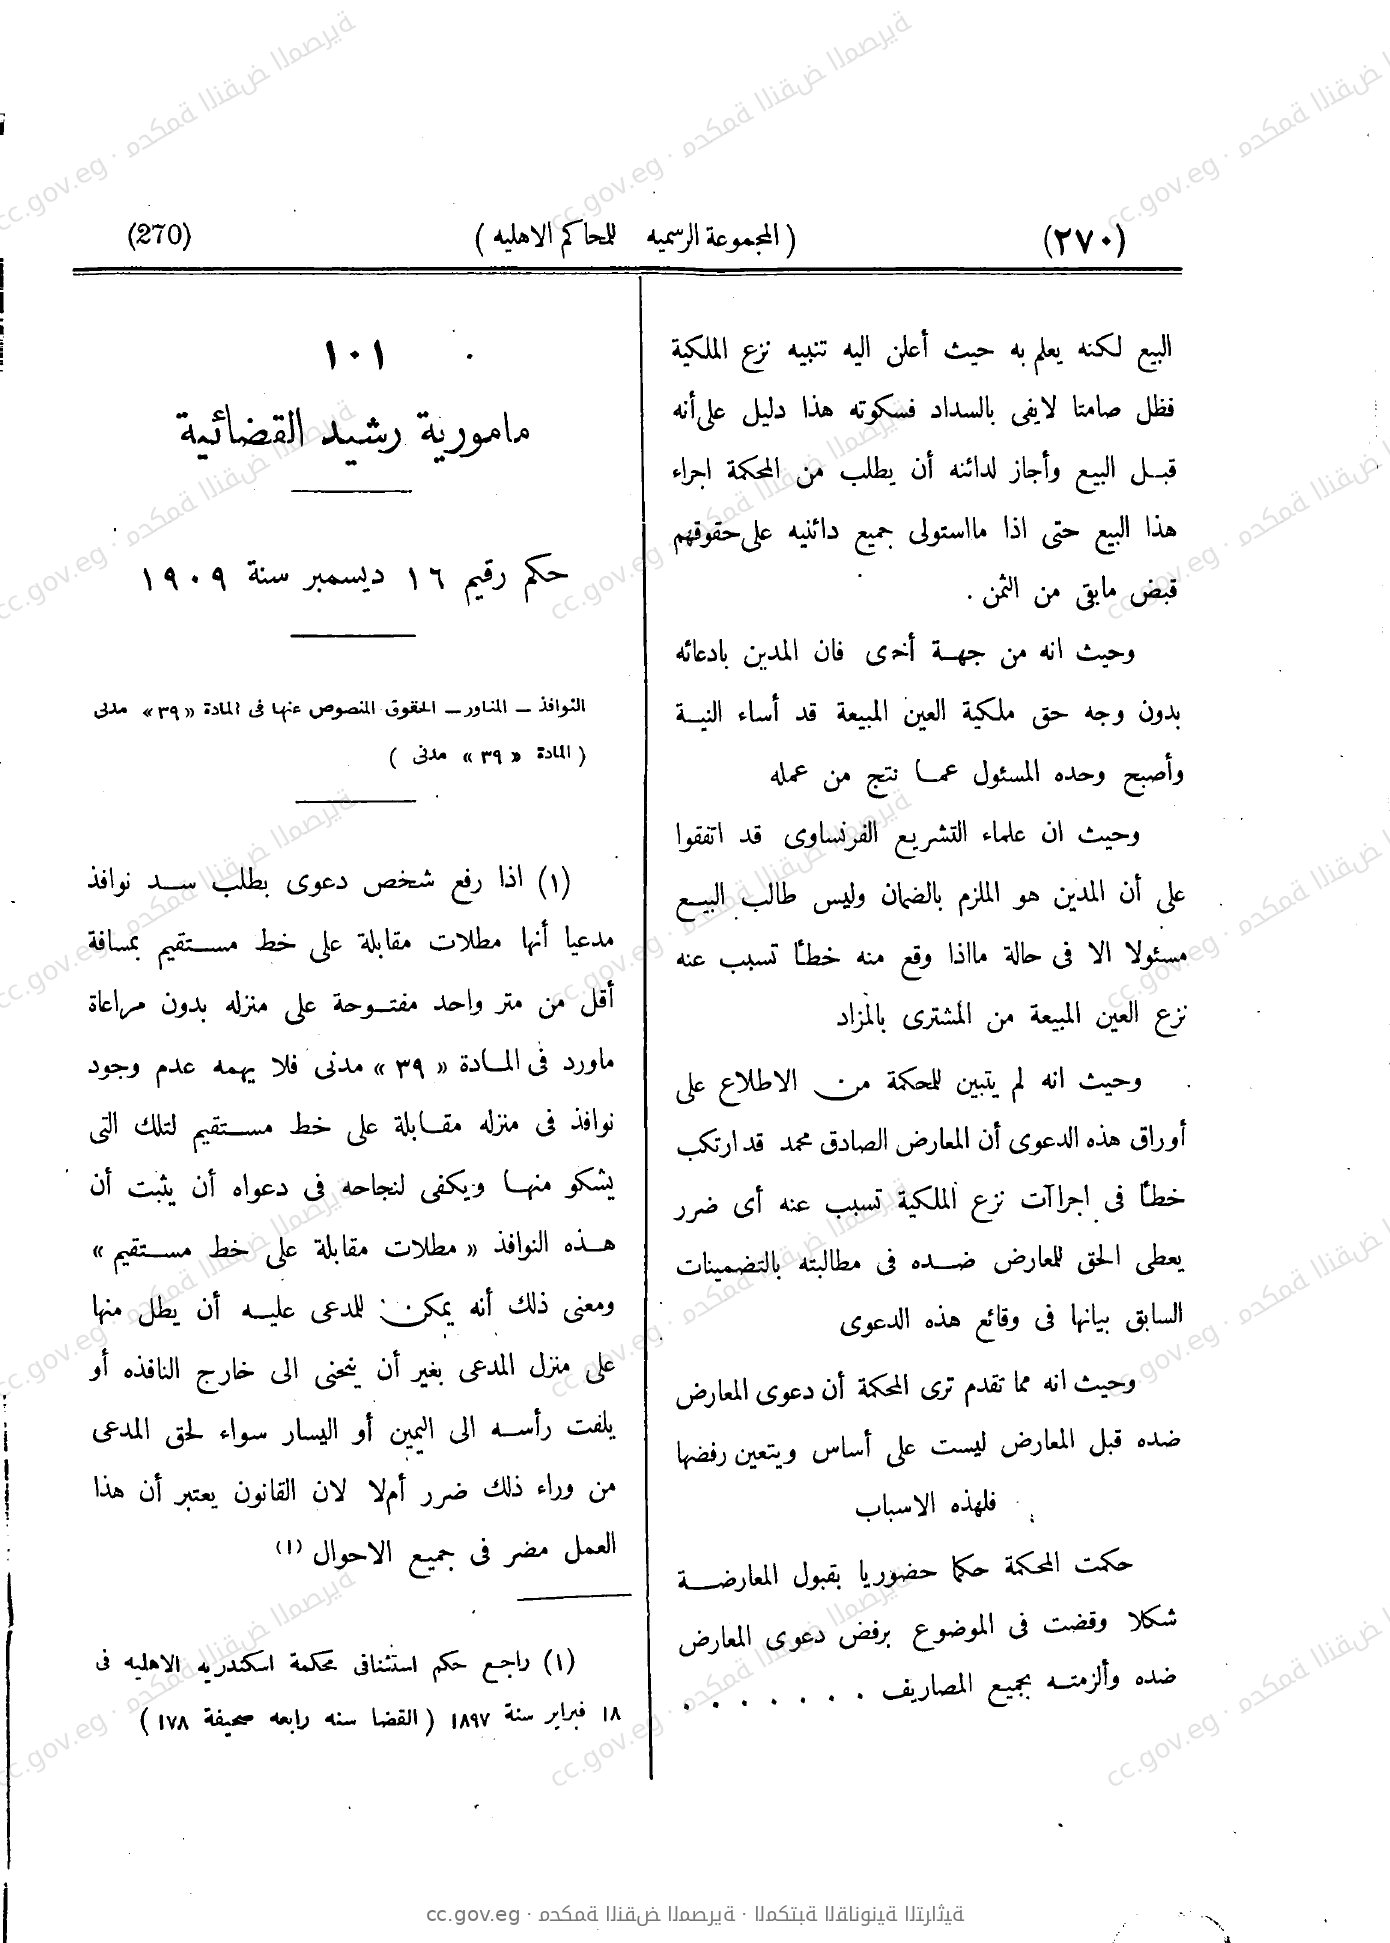 (٢٧٠) ( المجموعة الرسميه للمحاكم الاهليه ) (270)
البيع لكنه يعلم به حيث أعلن اليه تنبيه نزع الملكية
فظل صامتا لايفى بالسداد فسكوته هذا دليل على أنه
قبل البيع وأجاز لدائنه أن يطلب من المحكمة اجراء
هذا البيع حتى اذا مااستولى جميع دائنيه على حقوقهم
قبض مابقى من الثمن .
وحيث انه من جهة أخرى فان المدين بادعائه
بدون وجه حق ملكية العين المبيعة قد أساء النية
وأصبح وحده المسئول عما نتج من عمله
وحيث ان علماء التشريع الفرنساوى قد اتفقوا
على أن المدين هو الملزم بالضمان وليس طالب البيع
مسئولا الا فى حالة مااذا وقع منه خطأ تسبب عنه
نزع العين المبيعة من المشترى بالمزاد
وحيث انه لم يتبين للمحكمة من الاطلاع على
أوراق هذه الدعوى أن المعارض الصادق محمد قد ارتكب
خطأ فى اجراآت نزع الملكية تسبب عنه أى ضرر
يعطى الحق للمعارض ضده فى مطالبته بالتضمينات
السابق بيانها فى وقائع هذه الدعوى
وحيث انه مما تقدم ترى المحكمة أن دعوى المعارض
ضده قبل المعارض ليست على أساس ويتعين رفضها
فلهذه الاسباب
حكمت المحكمة حكما حضوريا بقبول المعارضة
شكلا وقضت فى الموضوع برفض دعوى المعارض
ضده وألزمته بجميع المصاريف . . . . . . .
١٠١
مامورية رشيد القضائية
حكم رقيم ١٦ ديسمبر سنة ١٩٠٩
النوافذ – المناور – الحقوق المنصوص عنها فى المادة « ٣٩ » مدنى
( المادة « ٣٩ » مدنى )
(١) اذا رفع شخص دعوى بطلب سد نوافذ
مدعيا أنها مطلات مقابلة على خط مستقيم بمسافة
أقل من متر واحد مفتوحة على منزله بدون مراعاة
ماورد فى المادة « ٣٩ » مدنى فلا يهمه عدم وجود
نوافذ فى منزله مقابلة على خط مستقيم لتلك التى
يشكو منها ويكفى لنجاحه فى دعواه أن يثبت أن
هذه النوافذ « مطلات مقابلة على خط مستقيم »
ومعنى ذلك أنه يمكن للمدعى عليه أن يطل منها
على منزل المدعى بغير أن ينحنى الى خارج النافذه أو
يلفت رأسه الى اليمين أو اليسار سواء لحق المدعى
من وراء ذلك ضرر أم لا لان القانون يعتبر أن هذا
العمل مضر فى جميع الاحوال (١)
(١) راجع حكم استئنافى محكمة اسكندريه الاهليه فى
١٨ فبراير سنة ١٨٩٧ ( القضا سنه رابعه صحيفة ١٧٨ )
cc.gov.eg · محكمة النقض المصرية · المكتبة القانونية التراثية